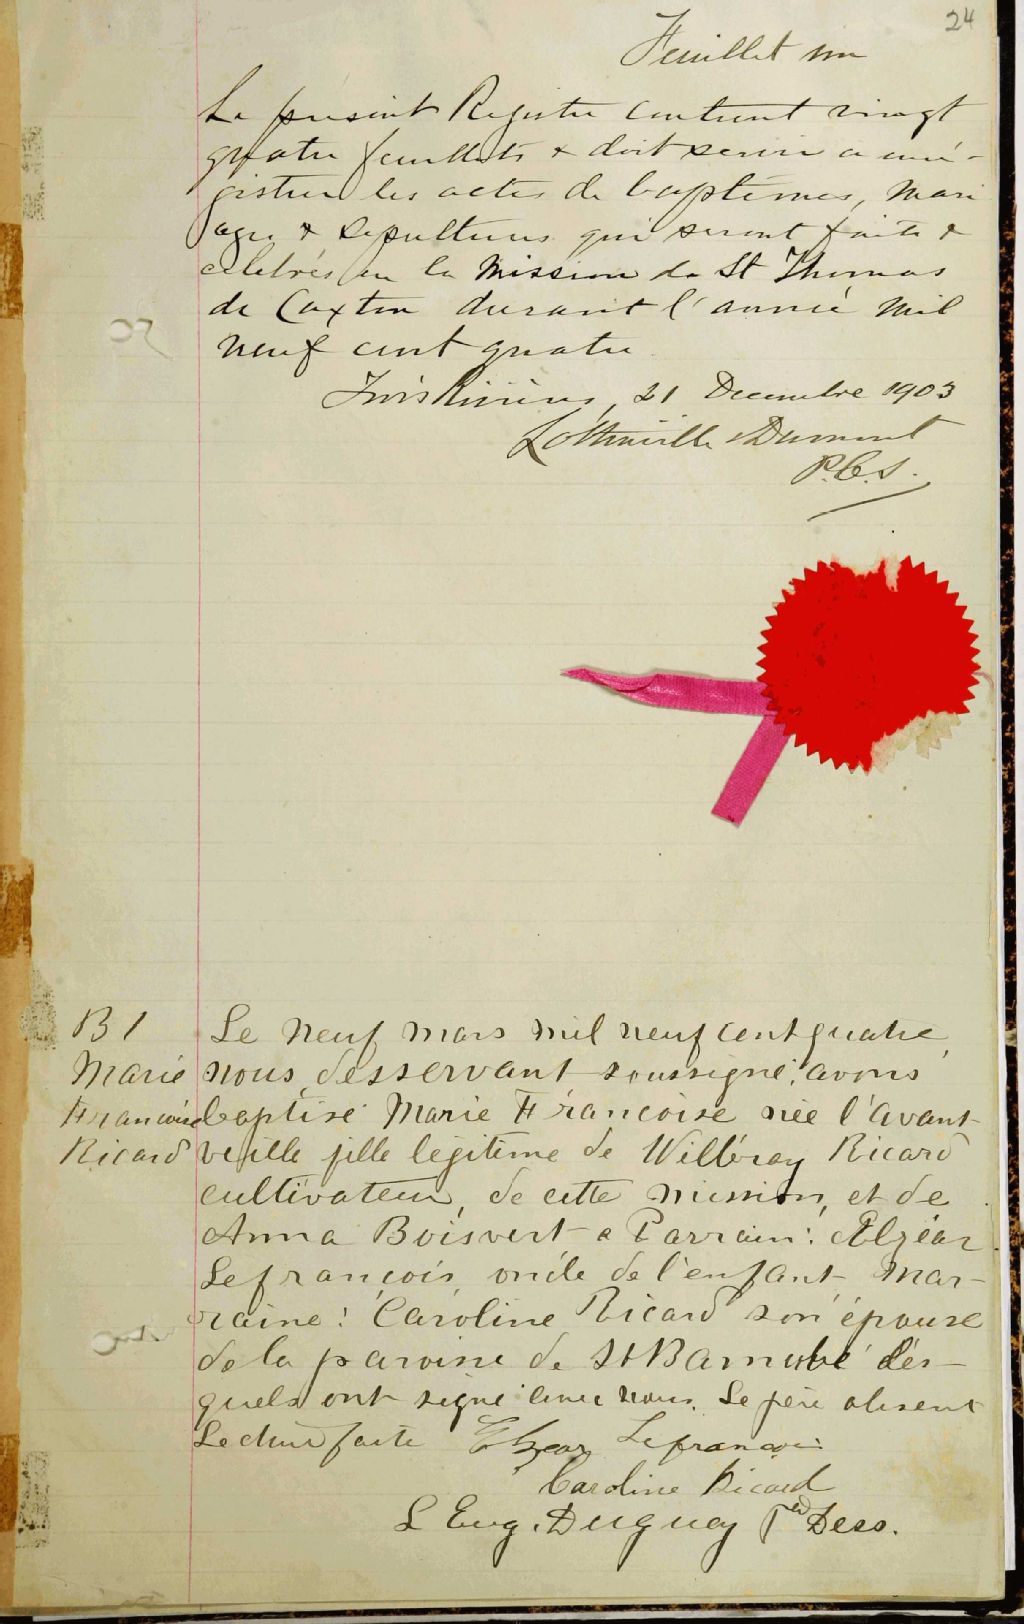 24
Feuillet un
Le present Registre contient vingt
quatre feuillets & doit servir a enré-
gistrer les actes de baptêmes, mari
ages & sepultures qui seront faits &
célébrés en la Mission de St Thomas
de Caxton durant l'année mil
neuf cent quatre
Trois Rivières, 21 Decembre 1903
Lottinville & Dumont
P.C.S.
B 1
Marie
Françoise
Ricard
Le neuf mars mil neuf cent quatre,
nous, desservant soussigné, avons
baptisé Marie Françoise née l'avant
veille fille légitime de Willbray Ricard
cultivateur, de cette mission, et de
Anna Boisvert. Parrain: Elzéar
Lefrançois, oncle de l'enfant, mar-
raine: Caroline Ricard son épouse
de la paroisse de St Barnabé les-
quels ont signé avec nous. Le père absent
Lecture faite Elzear Lefrancois
Caroline Ricard
L Eug. Duguay Ptre Dess.